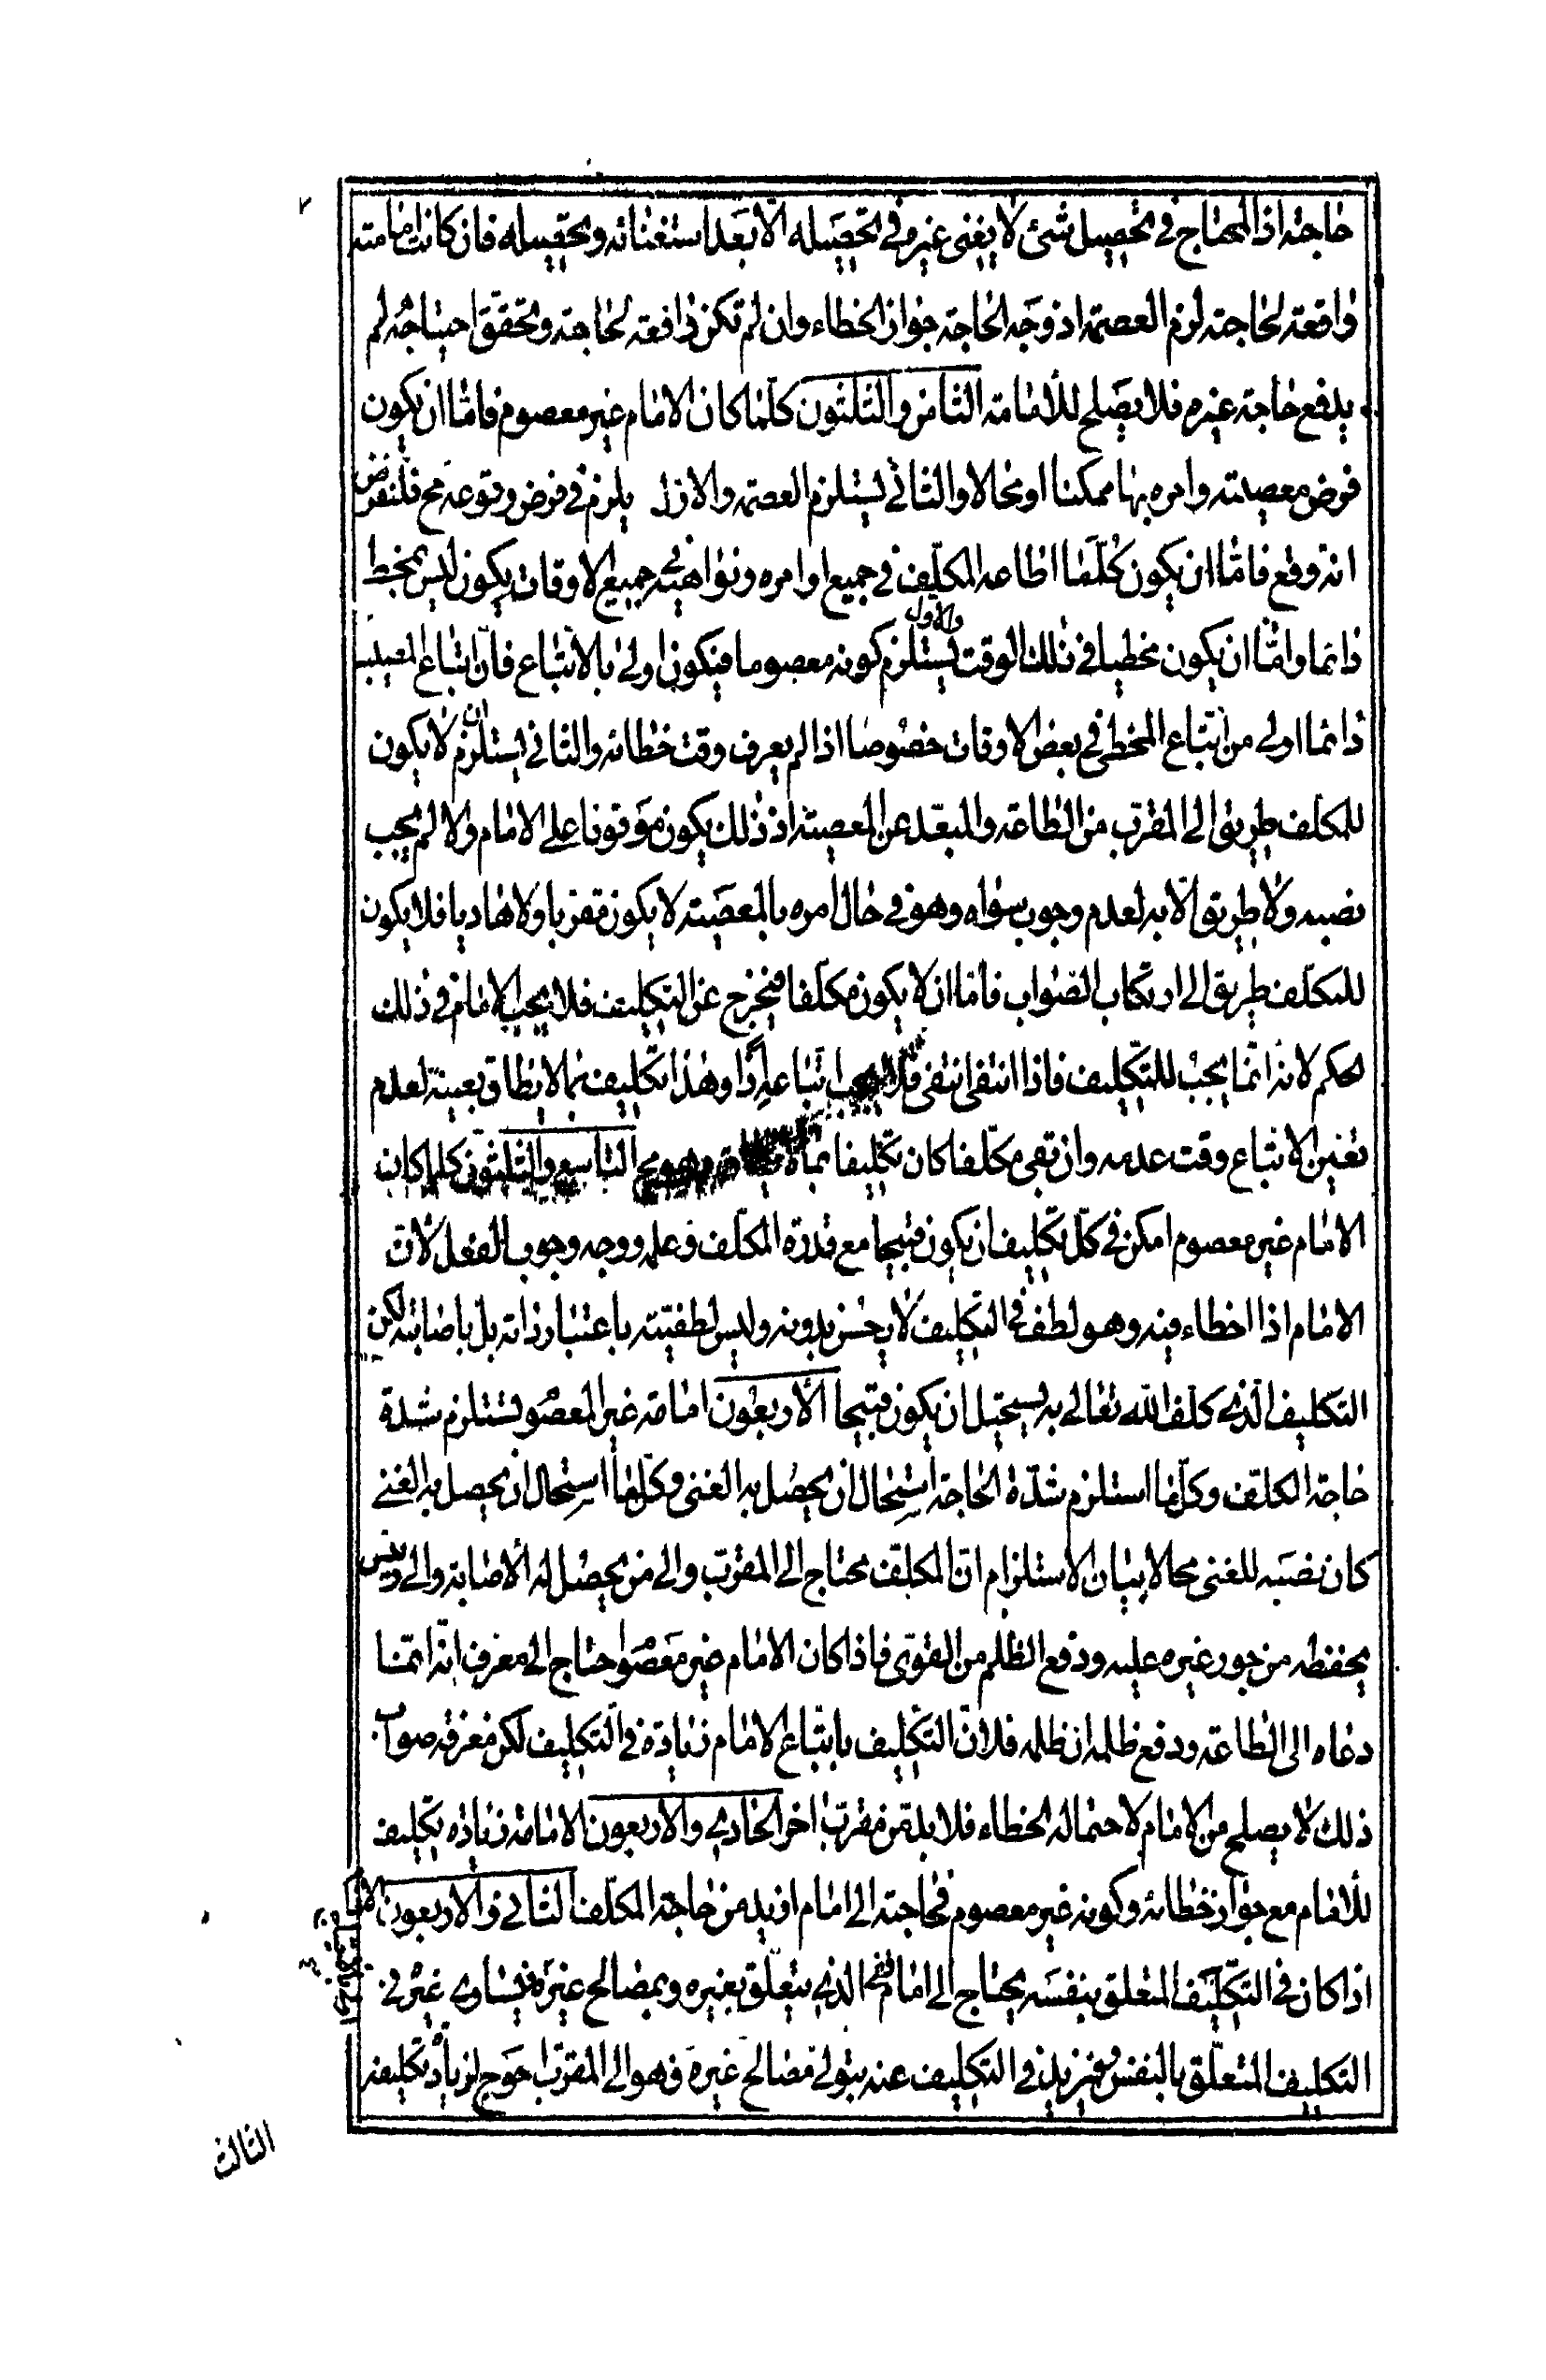 حاجته اذ المحتاج في تحصيل شئ لا يغنى غيره في تحصيله الا بعد استغنائه وتحصيله فان كانت امامته
دافعة لحاجته لزم العصمة اذ وجه الحاجة جواز الخطاء وان لم تكن دافعة لحاجته وتحقق احتياجه لم
يدفع حاجة غيره فلا يصلح للأمامة الثامن والثلثون كلما كان الامام غير معصوم فامّا ان يكون
فرض معصيته وامره بها ممكنا او محالا والثاني يستلزم العصمة والاول يلزم في فرض وقوعه مح فلنفرض
انه وقع فامّا ان يكون كلّما اطاعه المكلّف في جميع اوامره ونواهيه في جميع الاوقات يكون ليس بمخط
دائما وامّا ان يكون مخطيا في ذلك الوقت والاول يستلزم كونه معصوما فيكون اولى بالاتّباع فانّ اتباع المصيب
دائما اولى من اتّباع المخطى في بعض الاوقات خصوصا اذا لم يعرف وقت خطائه والثاني يستلزم ان لا يكون
للمكلف طريق الى المقرّب من الطاعة والمبعّد عن المعصية اذ ذلك يكون موقوفا على الامام والا لم يجب
نصبه ولا طريق الّا به لعدم وجوب سواه وهو في حال امره بالمعصية لا يكون مقربا ولا هاديا فلا يكون
للمكلّف طريق الى ارتكاب الصّواب فامّا ان لا يكون مكلّفا فيخرج عن التكليف فلا يجب الامام في ذلك
الحكم لانه انّما يجب للتّكليف فاذا انتفى انتفى فلا يجب اتّباعه اذا وهذا تكليف بما لا يطاق بعينه لعدم
تعيّن الاتباع وقت عدمه وان بقى مكلّفا كان تكليفا بما لا يطاق وهو مح التاسع والثلثون كلما كان
الامام غير معصوم امكن في كلّ تكليف ان يكون قبيحا مع قدرة المكلّف وعلمه ووجه وجوب الفعل لانّ
الامام اذا اخطاء فيه وهو لطف في التكليف لا يحسن بدونه وليس لطفيّته باعتبار ذاته بل باصابته لكن
التكليف الّذى كلّف الله تعالى به يستحيل ان يكون قبيحا الأربعون امامة غير المعصوم تستلزم شدة
حاجة المكلف وكلّما استلزم شدّة الحاجة استحال ان يحصل به الغنى وكلّما استحال ان يحصل به الغنى
كان نصبه للغنى محالا بيان الاستلزام انّ المكلّف محتاج الى المقرّب والى من يحصل له الاصابة والى رئيس
يحفظه من جور غيره عليه ودفع الظلم من القوى فاذا كان الامام غير معصوم احتاج الى معرف انّه انّما
دعاه الى الطاعة ودفع ظلمه ان ظلمه فلانّ التكليف باتّباع الامام زيادة في التكليف لكن معرفة صواب
ذلك لا يصلح من الامام لاحتماله الخطاء فلا بد من مقرّب اخر الحادى والاربعون الامامة زيادة تكليف
للأمام مع جواز خطائه وكونه غير معصوم فحاجته الى امام ازيد من حاجة المكلف الثاني والاربعون
اذا كان في التكليف المتعلق بنفسه يحتاج الى امام ففى الذى يتعلّق بغيره وبمصالح غيره فيساوى غيره في
التكليف المتعلّق بالنفس ويزيد في التكليف عنه بتولى مصالح غيره فهو الى المقرّب احوج لزيادة تكليفه
الثالث